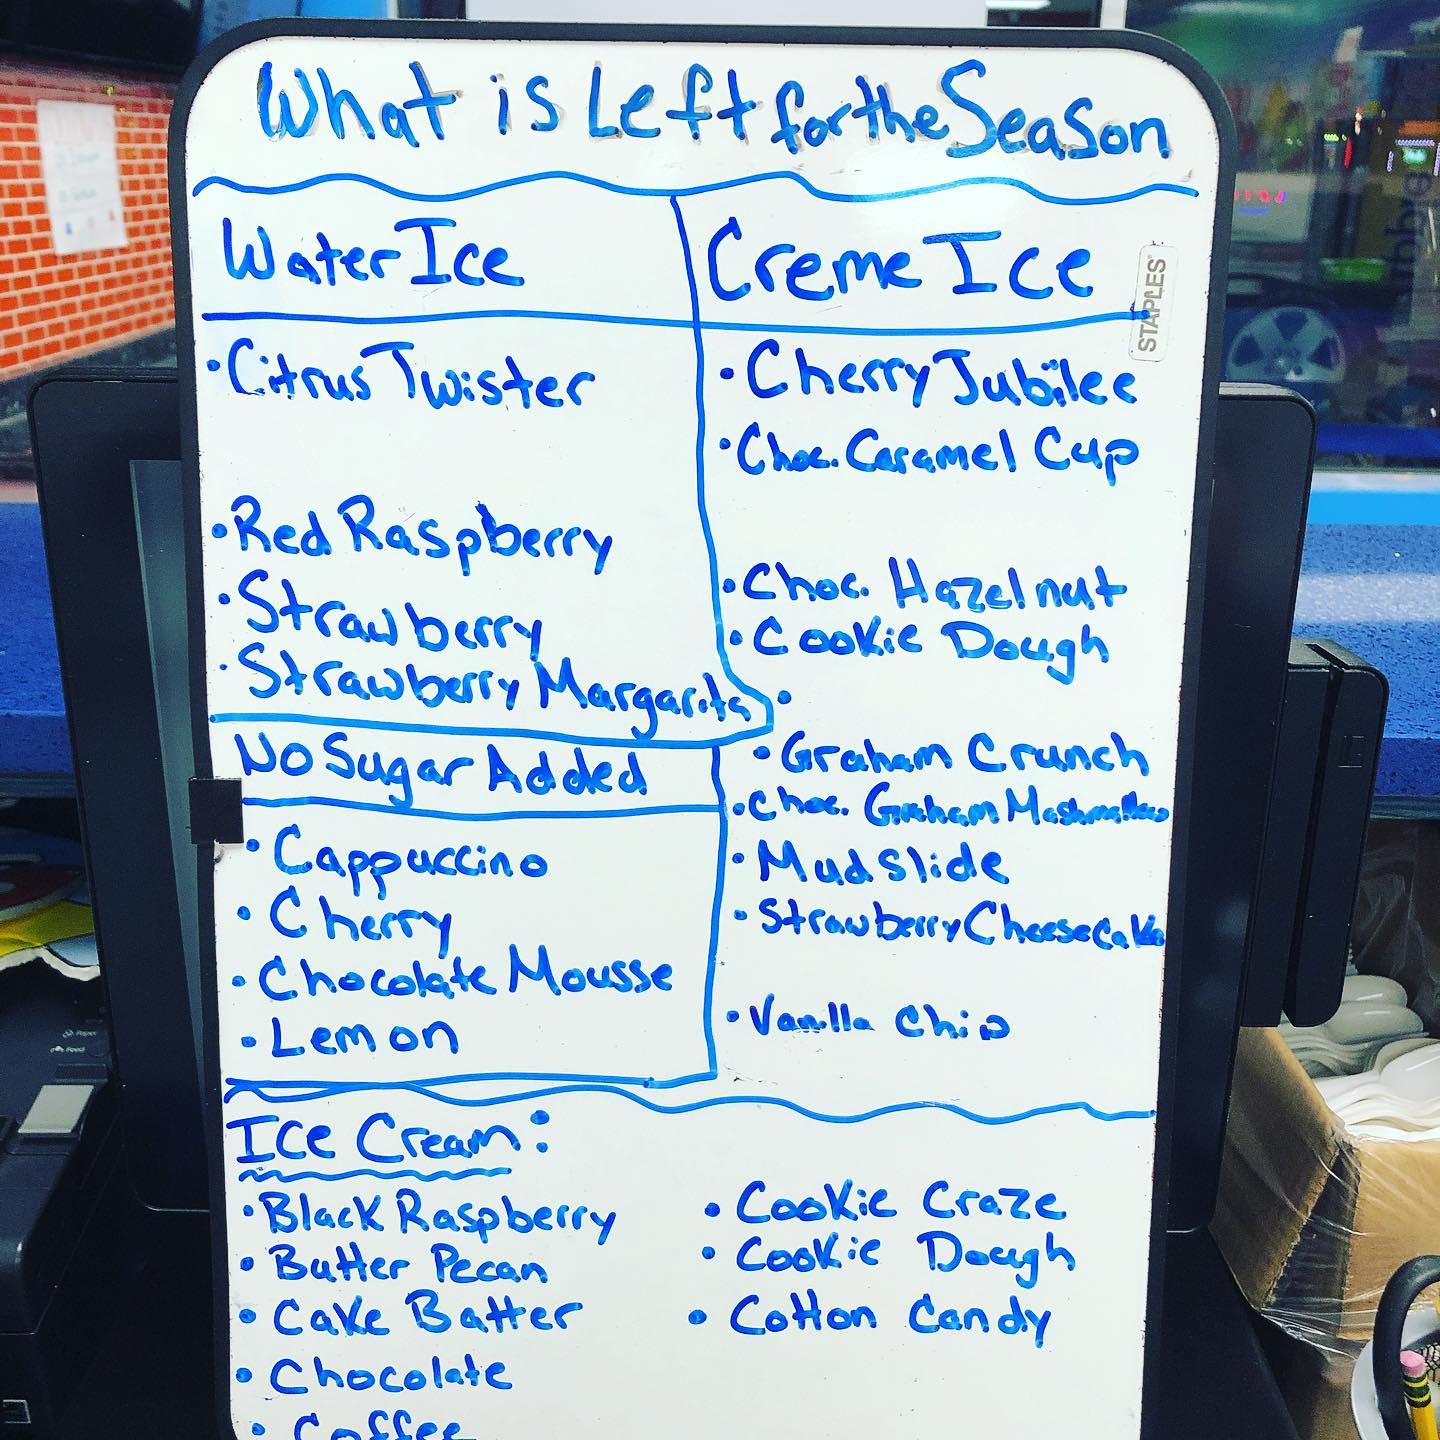 What is Left for the Season
Water Ice
• Citrus Twister
• Red Raspberry
• Strawberry
• Strawberry Margarita
No Sugar Added
• Cappuccino
• Cherry
• Chocolate Mousse
• Lemon
Creme Ice
STAPLES
• Cherry Jubilee
• Choc. Caramel Cup
• Choc. Hazelnut
• Cookie Dough
•
• Graham Crunch
• Choc. Graham Mashmallow
• Mudslide
• Strawberry Cheesecake
• Vanilla Chip
Ice Cream:
• Black Raspberry
• Butter Pecan
• Cake Batter
• Chocolate
• Coffee
• Cookie Craze
• Cookie Dough
• Cotton Candy